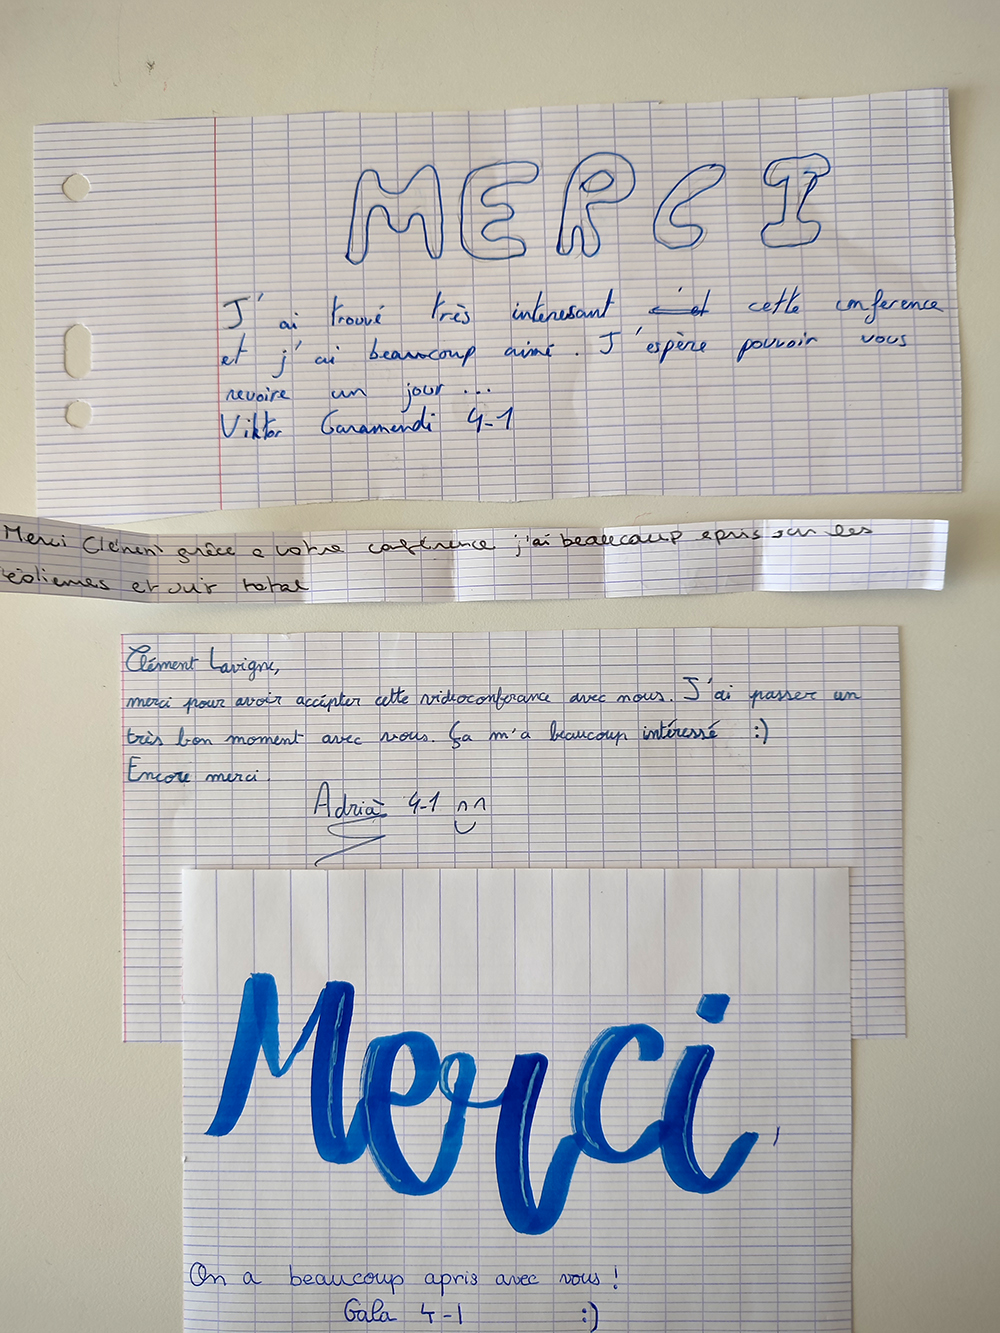 MERCI
J'ai trouvé très interesant cette conference
et j'ai beaucoup aimé. J'espère pouvoir vous
revoire un jour ...
Viktor Garamendi 4-1
Merci Clément grâce a votre conférence j'ai beaucoup apris sur les
éoliennes et sur total
Clément Lavigne,
merci pour avoir accépter cette vidéoconférance avec nous. J'ai passer un
très bon moment avec vous. Ça m'a beaucoup intéressé :)
Encore merci.
Adrià 4-1
Merci,
On a beaucoup apris avec vous !
Gala 4-1 :)